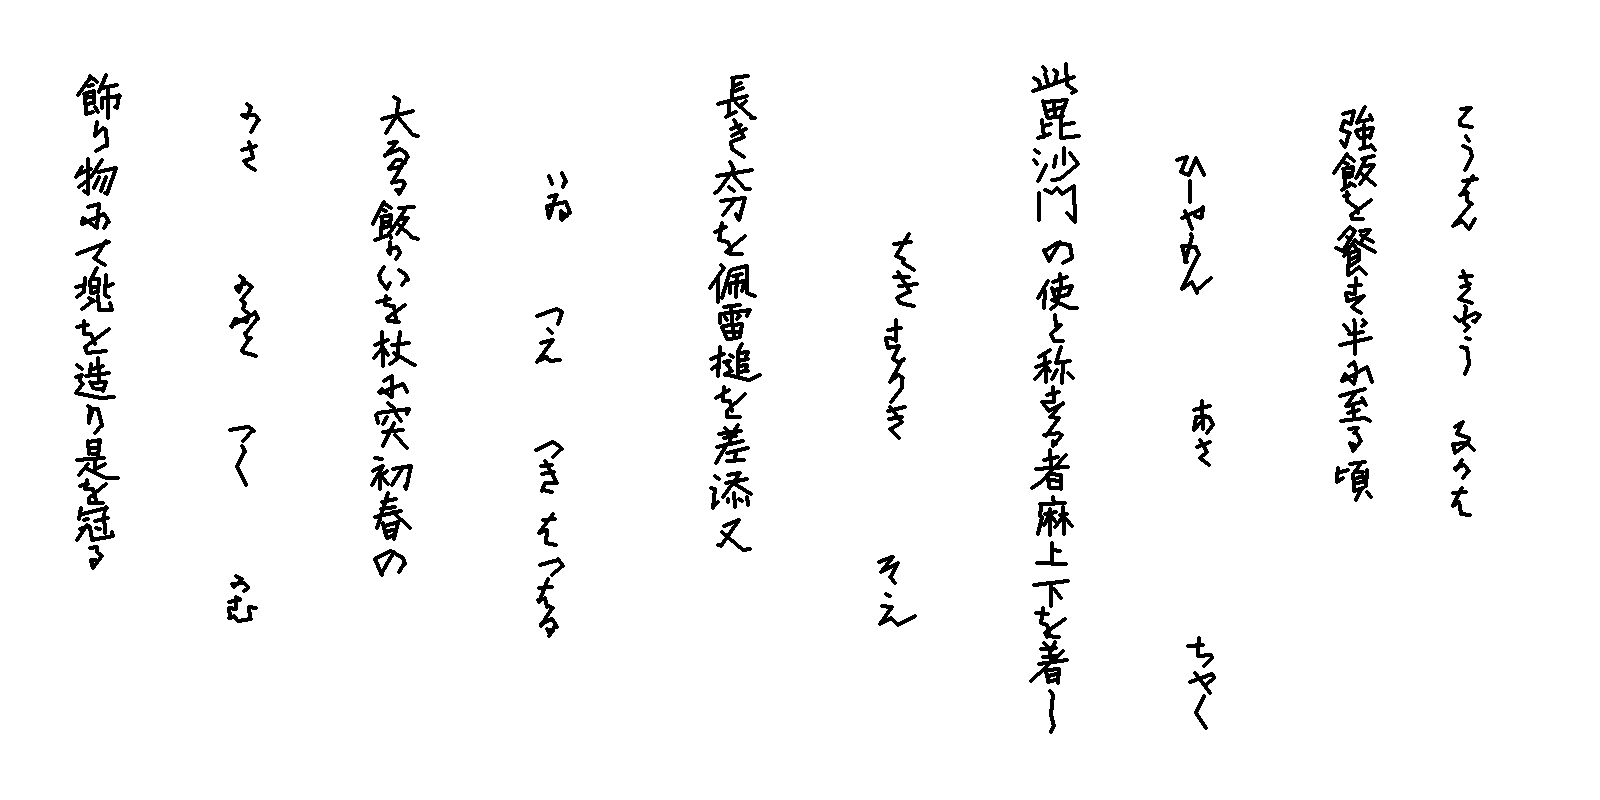 こうはん きやう なかは
強飯を餐す半に至る頃
ひしやもん あさ ちやく
此毘沙門の使と称する者麻上下を着し
はき すりき そえ
長き太刀を佩雷槌を差添又
いゐ つえ つき はつはる
大なる飯かいを杖に突初春の
かさ かふと つく かむ
飾り物にて兜を造り是を冠る